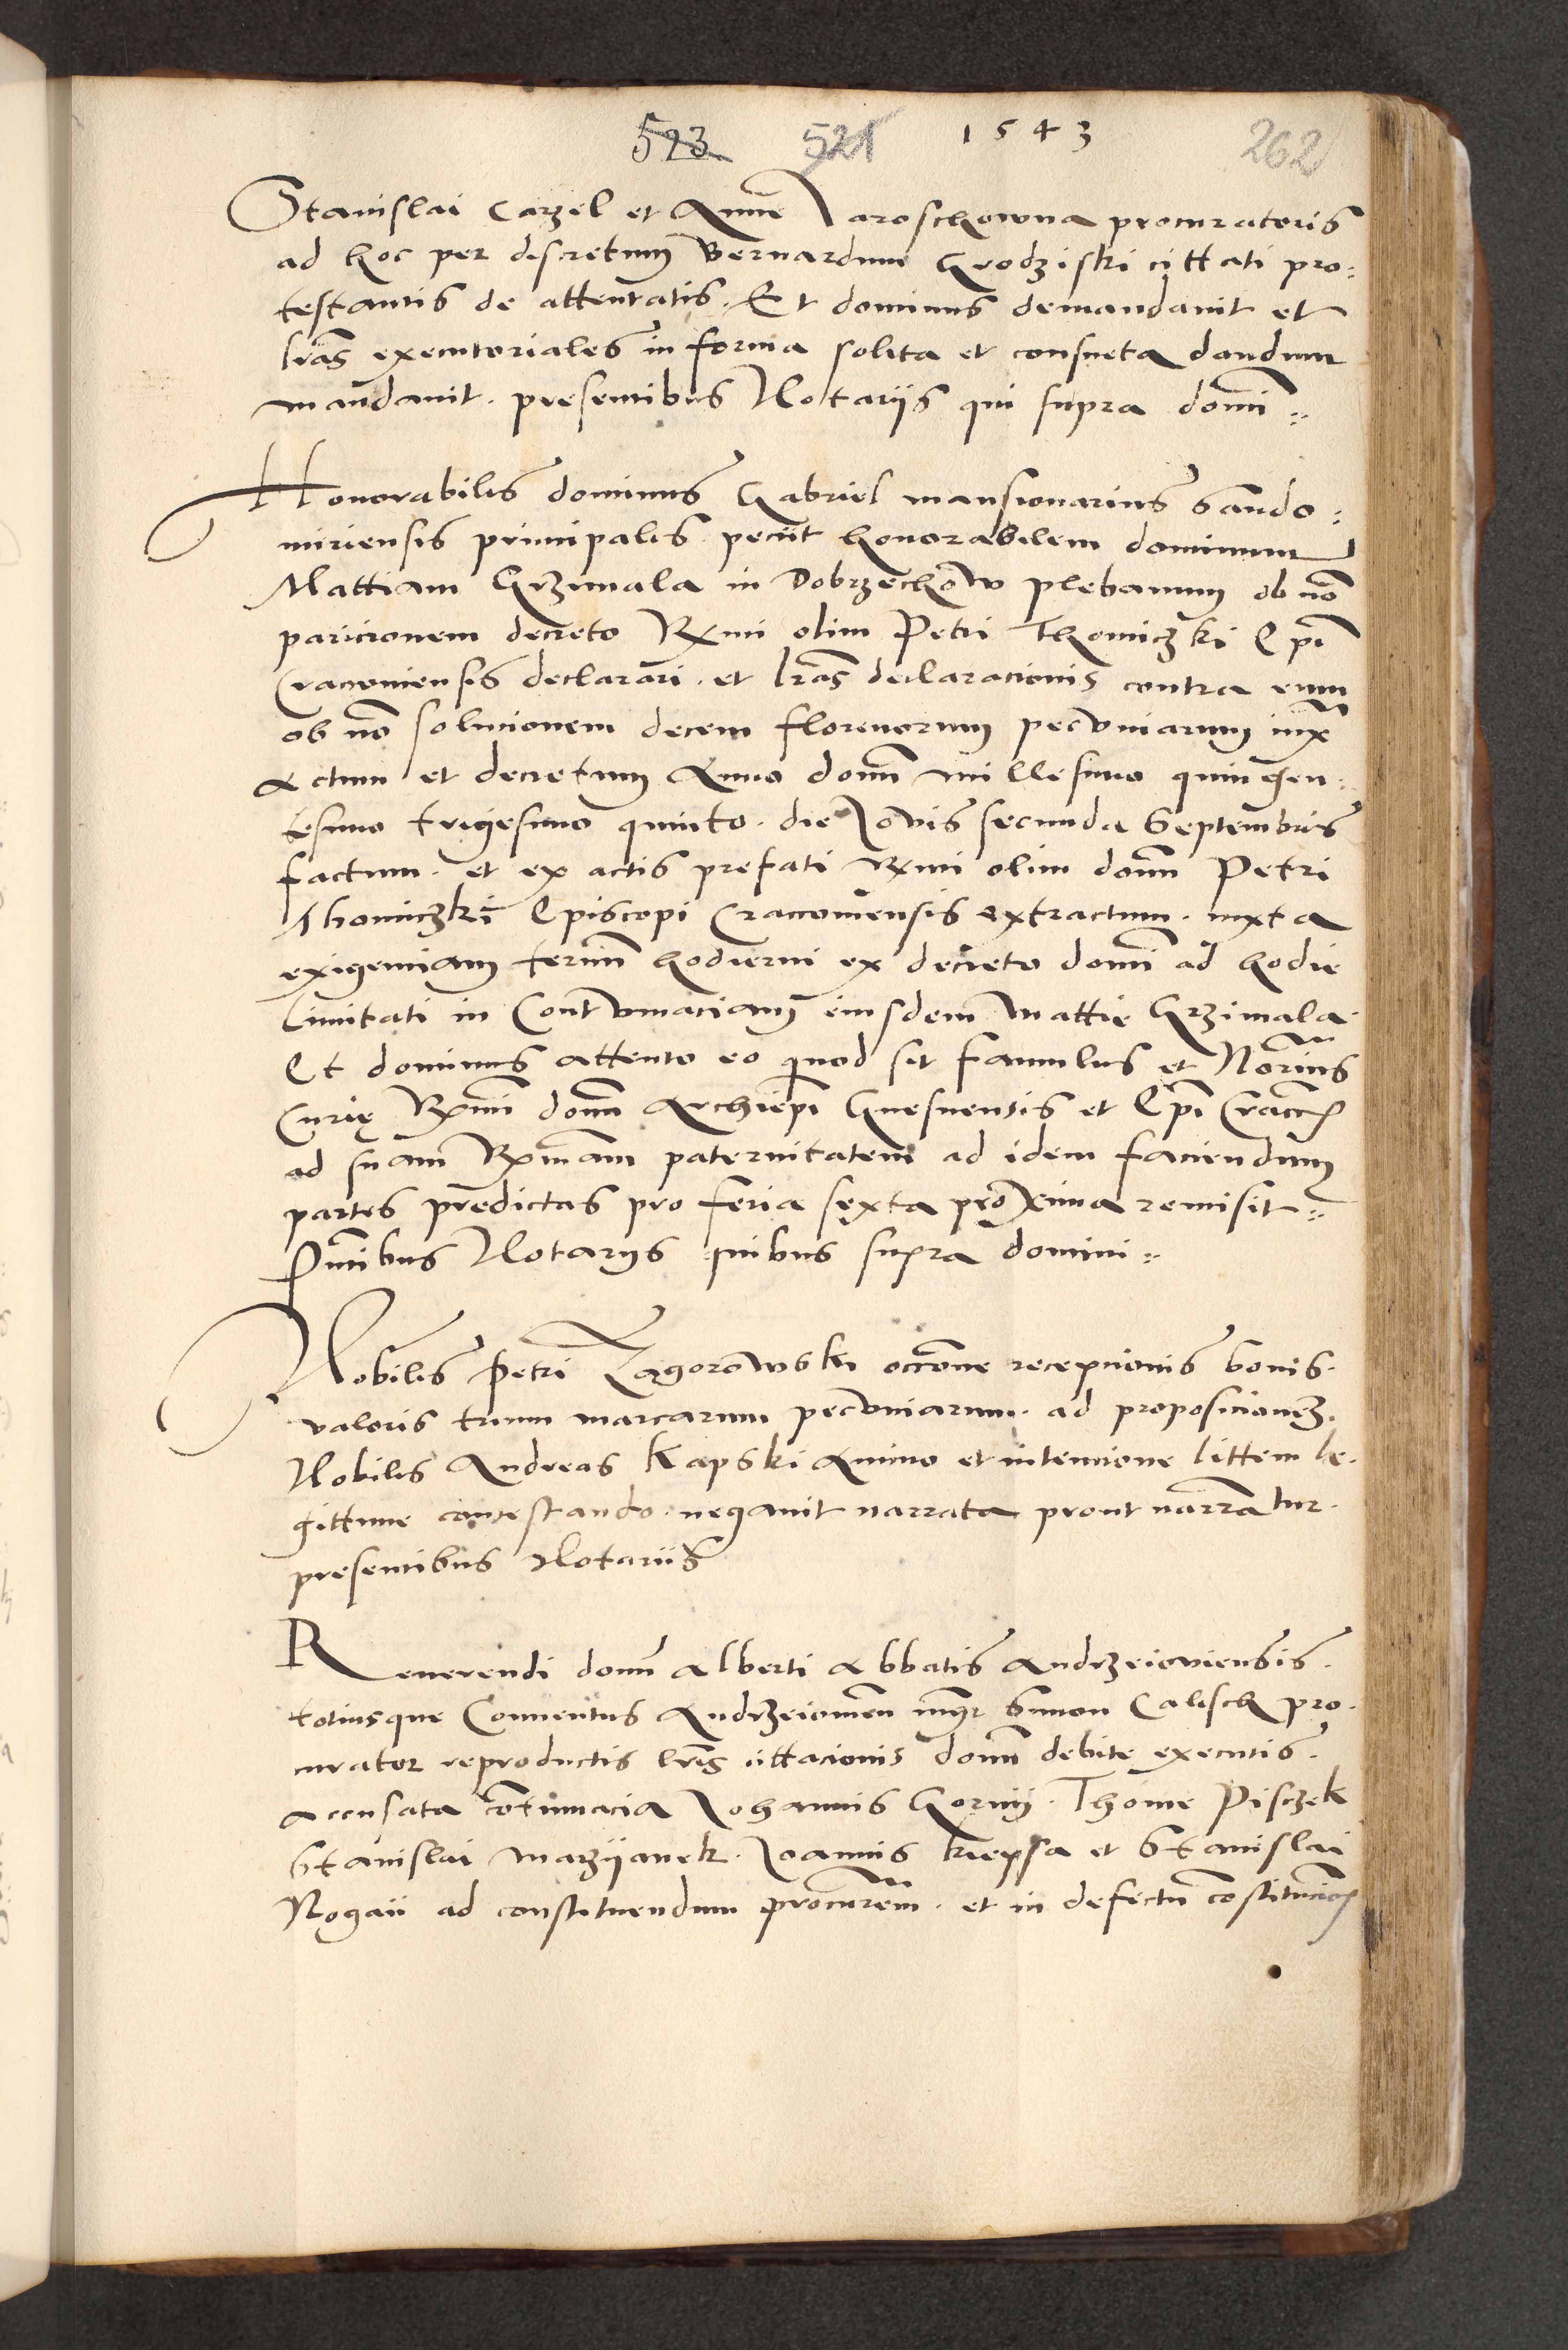 523 521 1543 262
Stanislai Carzel et Anne Jaroschowna procuratoris
ad hoc per discretum Bernardum Grodziski cittati pro:
testantis de attentatis. Et dominus demandavit et
lras executoriales in forma solita et consueta dandum
mandavit. presentibus Notariis qui supra domi:
Honorabilis dominus Gabriel mansionarius Sando:
miriensis principalis peciit honorabilem dominum
Mattiam Grzimala in Dobrzechow plebanum ob no
paricionem decreto Rxmi olim Petri Thomiczki Epi
Cracoviensis declarari. et lras declaracionis contra eum
ob no solucionem decem florenorum pecuniarum iux
actum et decretum Anno domi millesimo quingen.
tesimo trigesimo quinto. die Jovis secunda Septembris
factum. et ex actis prefati Rxmi olim domi Petri
Thomiczki Episcopi Craccoviensis extractum. iuxta
exigenciam termi hodierni ex decreto domi ad hodie
limitati in Contumaciam eiusdem Mattie Grzimala
Et dominus attento eo quod sit famulus et Norius
Curię Rxmi domi Archiepi Gnesnensis et Epi Cracc
ad suam Rxmam paternitatem ad idem faciendum
partes predictas pro feria sexta proxima remisit:
Pntibus Notariis quibus supra domini:
Nobilis Petri Zagorowski occone recepcionis bovis.
valoris trium marcarum pecuniarum. ad proposicionem.
Nobilis Andreas Kapski Animo et intencione littem le.
gittime contestando. negavit narrata prout narratur.
presentibus Notariis
Reverendi domi Alberti Abbatis Andrzeioviensis.
totiusque Conventus Andrzeiovien mgr Simon Calisch pro.
curator reproductis lris cittacionis domi debite executis.
accusata cotumacia Johannis Gornij. Thome Pisczek
Stanislai Marzijanek. Joannis Kiepsa et Stanislai
Nogaii ad constituendum procurem. et in defectu costitucios